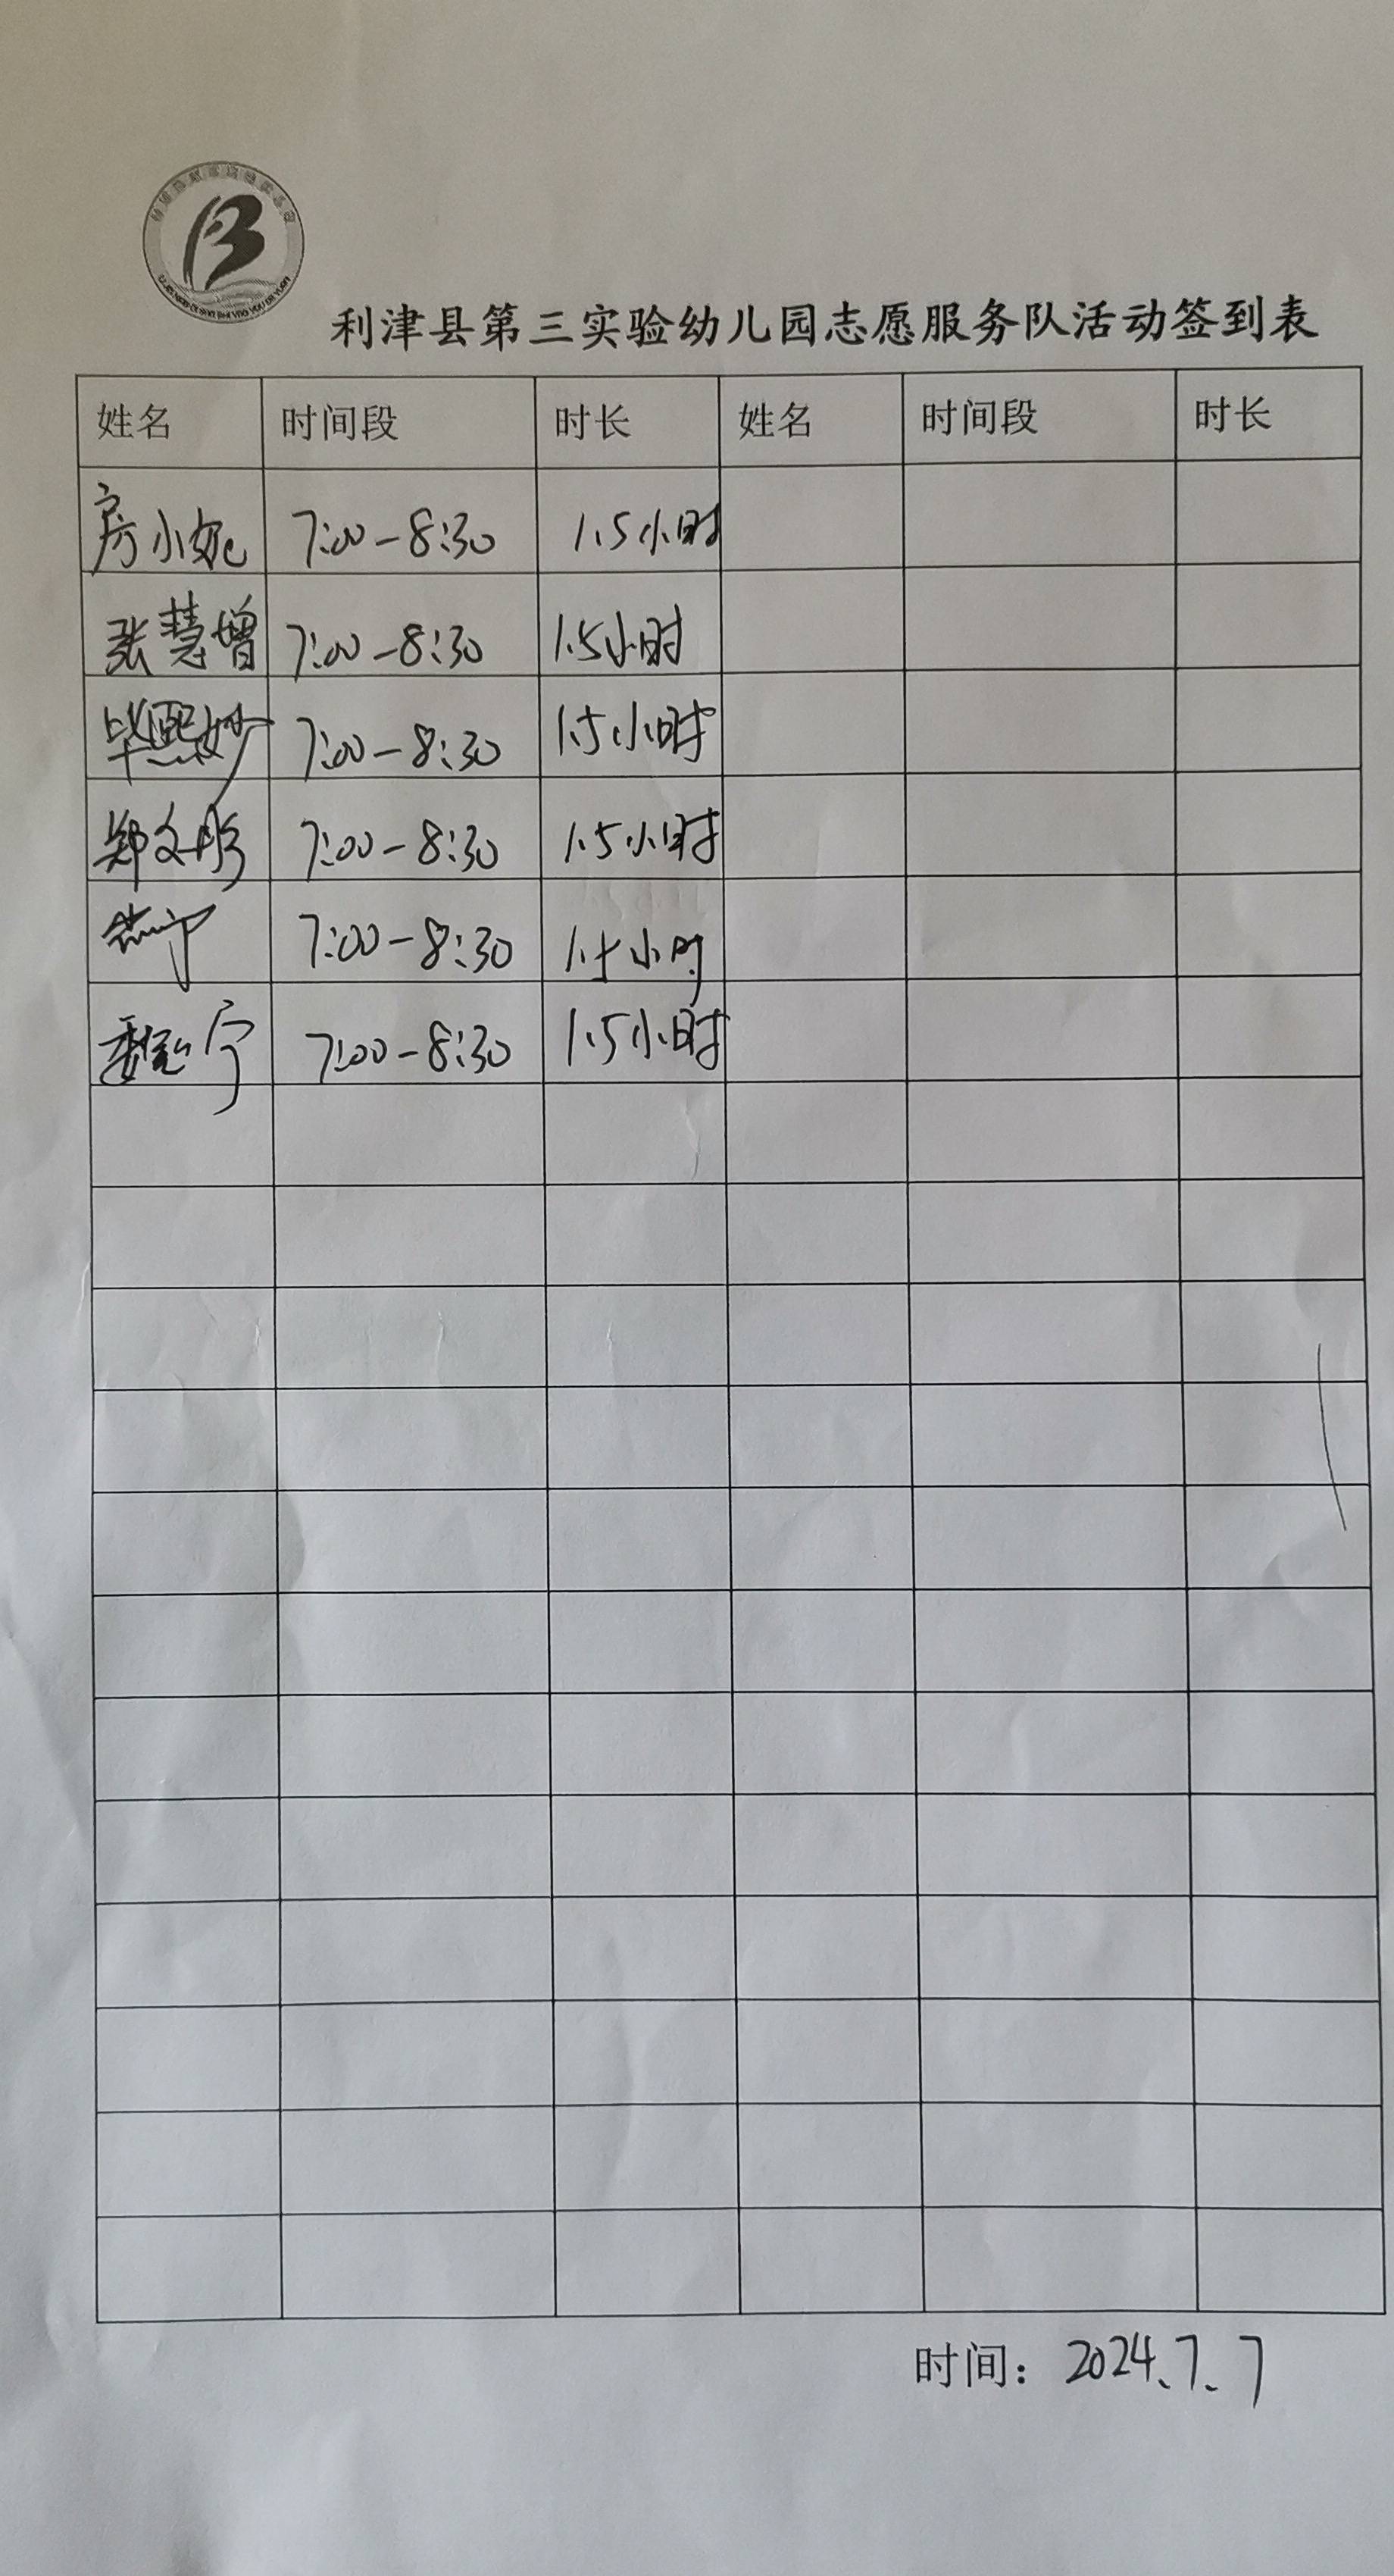 利津县第三实验幼儿园志愿服务队活动签到表
姓名 时间段 时长 姓名 时间段 时长
房小妮 7:00-8:30 1.5小时
张慧增 7:00-8:30 1.5小时
毕熙妙 7:00-8:30 1.5小时
郑文彤 7:00-8:30 1.5小时
7:00-8:30 1.5小时
宁 7:00-8:30 1.5小时
时间：2024.7.7